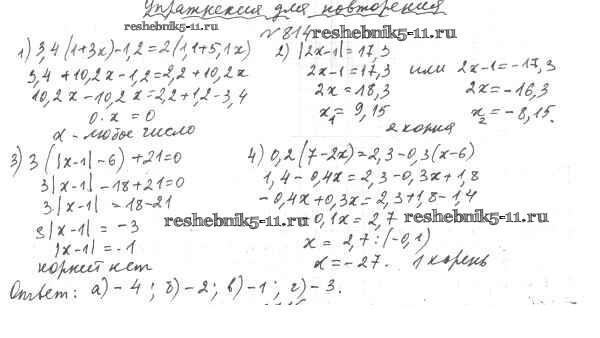 Упражнения для повторения
reshebnik5-11.ru
№ 814 reshebnik5-11.ru
1) 3,4(1+3x)-1,2=2(1,1+5,1x)
3,4+10,2x-1,2=2,2+10,2x
10,2x-10,2x=2,2+1,2-3,4
0·x=0
x - любое число
2) |2x-1|=17,3
2x-1=17,3 или 2x-1=-17,3
2x=18,3 2x=-16,3
x₁=9,15 x₂=-8,15.
2 корня
3) 3(|x-1|-6)+21=0
3|x-1|-18+21=0
3|x-1|=18-21
3|x-1|=-3
|x-1|=-1
корней нет
4) 0,2(7-2x)=2,3-0,3(x-6)
1,4-0,4x=2,3-0,3x+1,8
-0,4x+0,3x=2,3+1,8-1,4
reshebnik5-11.ru 0,1x=2,7 reshebnik5-11.ru
x=2,7:(-0,1)
x=-27. 1 корень
Ответ: а)-4; б)-2; в)-1; г)-3.